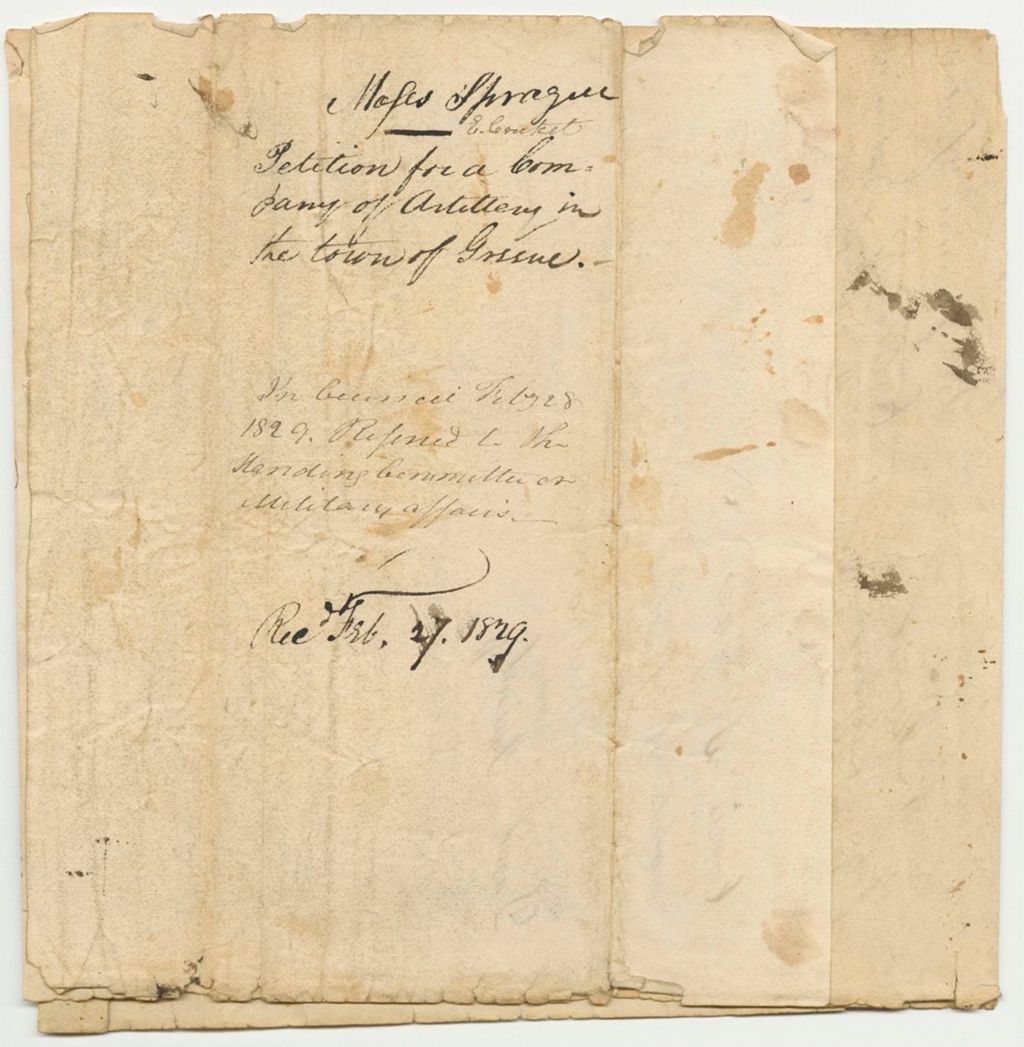 Moses Sprague
Petition for a Com=
pany of Artillery in
the town of Greene.
In Council Feby 28
1829. Referred to the
Standing Committee on
Military affairs.
Recd Feb. 27. 1829.